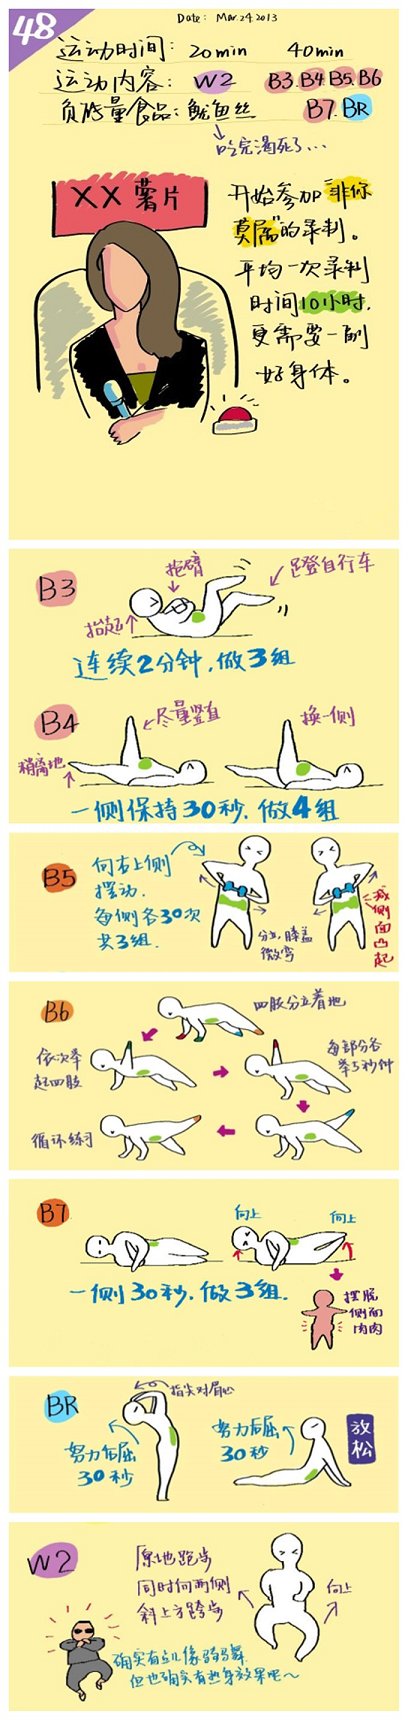 48
Date: Mar.24.2013
运动时间: 20min 40min
运动内容: W2 B3.B4.B5.B6
B7.BR
负能量食品: 鱿鱼丝
吃完渴死了...
XX薯片
开始参加"非你
莫属"的录制。
平均一次录制
时间10小时.
更需要一副
好身体。
B3
抱臂
足登自行车
抬起
连续2分钟,做3组
B4
尽量竖直
换一侧
稍离地
一侧保持30秒.做4组
B5
向右上侧
摆动.
每侧各30次
共3组.
分立,膝盖
微弯
减侧面凸起
B6
四肢分立着地
依次举
起四肢
每部分各
举5秒钟
循环练习
B7
向上
向上
一侧30秒,做3组.
摆脱
侧面
肉肉
BR
指尖对眉心
努力后屈
30秒
努力后屈
30秒
放松
W2
原地跑步
同时向两侧
斜上方跨步
向上
确实有点儿像骑马舞
但也确实有热身效果吧~